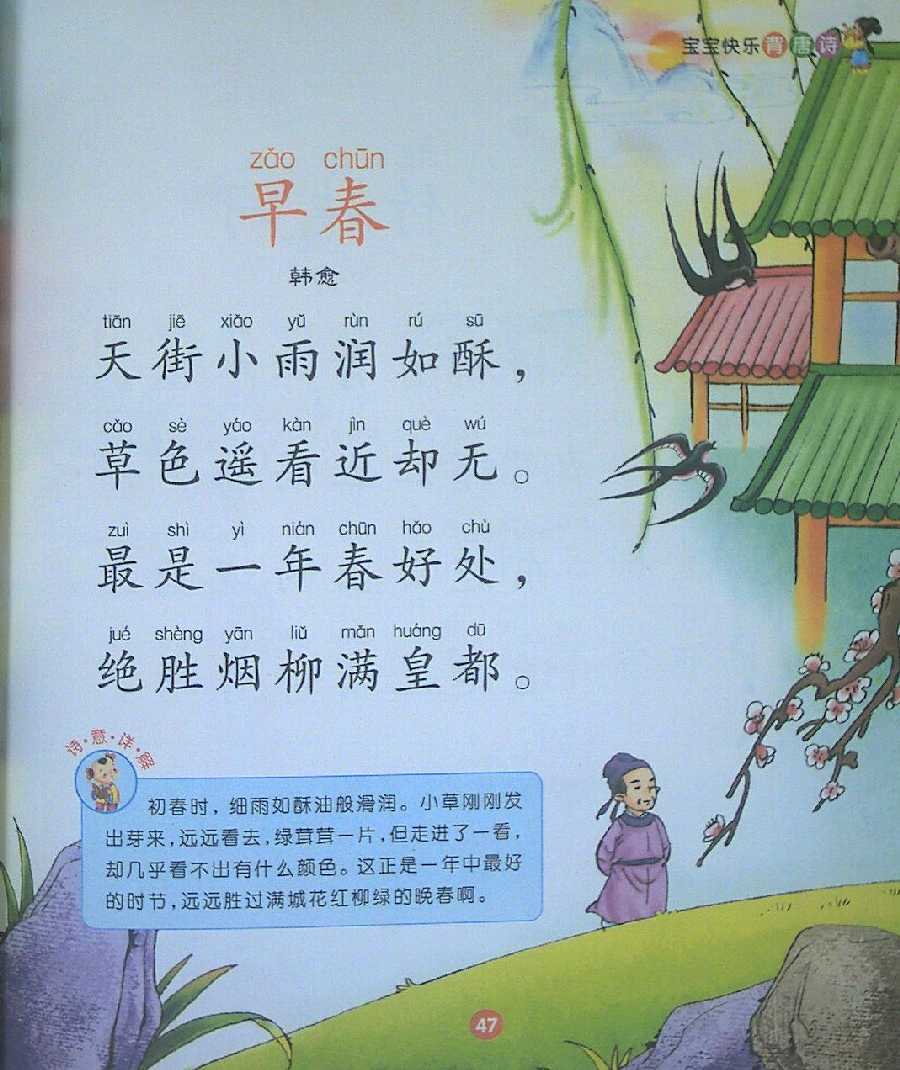 宝宝快乐背唐诗
zǎo chūn
早春
韩愈
tiān jiē xiǎo yǔ rùn rú sū
天街小雨润如酥，
cǎo sè yáo kàn jìn què wú
草色遥看近却无。
zuì shì yì nián chūn hǎo chù
最是一年春好处，
jué shèng yān liǔ mǎn huáng dū
绝胜烟柳满皇都。
诗·意·详·解
初春时，细雨如酥油般滑润。小草刚刚发
出芽来，远远看去，绿茸茸一片，但走进了一看，
却几乎看不出有什么颜色。这正是一年中最好
的时节，远远胜过满城花红柳绿的晚春啊。
47